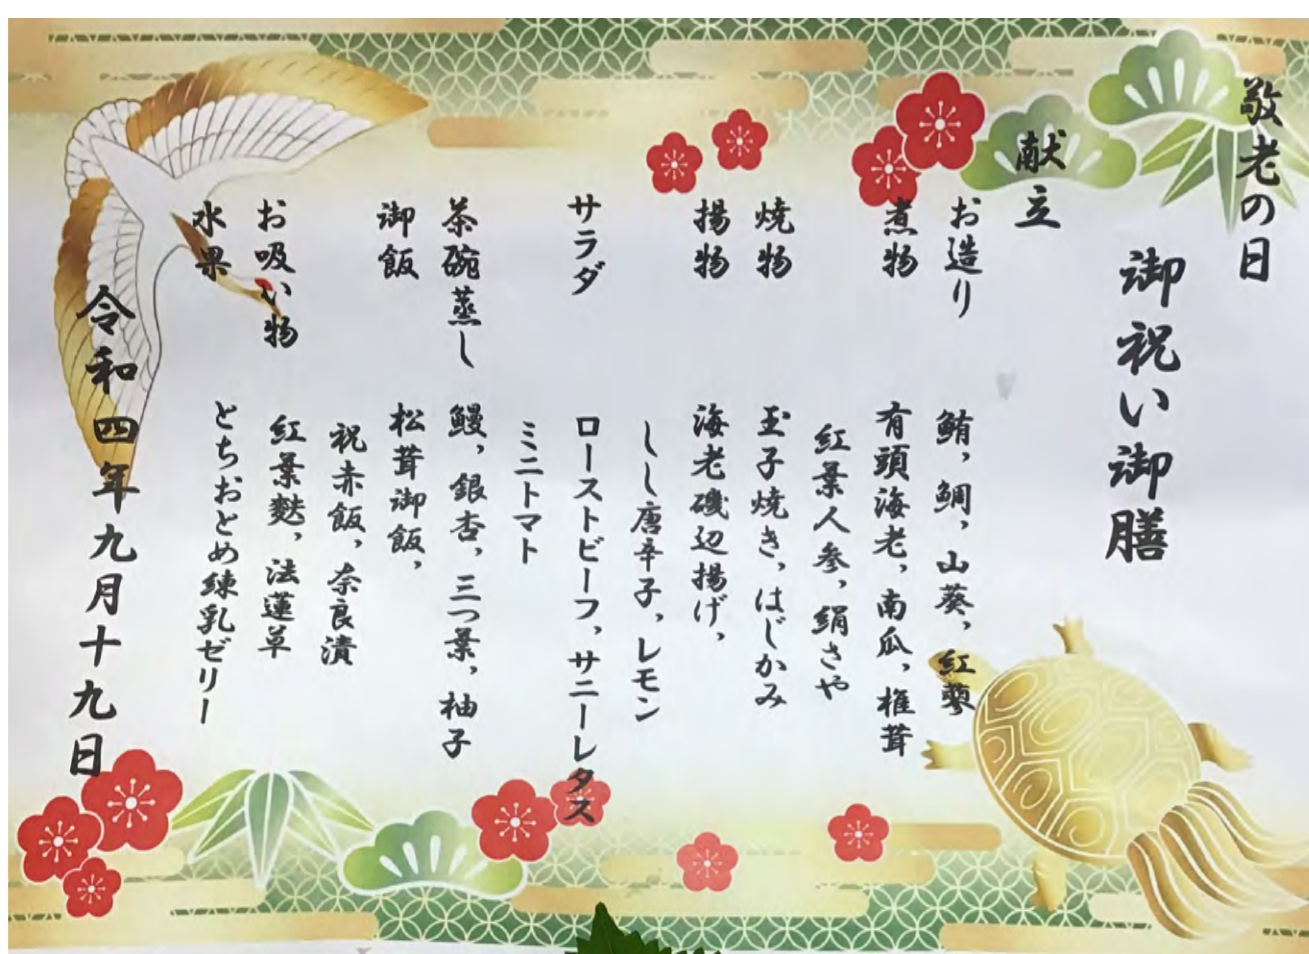 敬老の日
御祝い御膳
献立
お造り　鮪，鯛，山葵，紅蓼
煮物　有頭海老，南瓜，椎茸
紅葉人参，絹さや
焼物　玉子焼き，はじかみ
揚物　海老磯辺揚げ，
しし唐辛子，レモン
サラダ　ローストビーフ，サニーレタス
ミニトマト
茶碗蒸し　鰻，銀杏，三つ葉，柚子
御飯　松茸御飯，
祝赤飯，奈良漬
お吸い物　紅葉麩，法蓮草
水果　とちおとめ練乳ゼリー
令和四年九月十九日